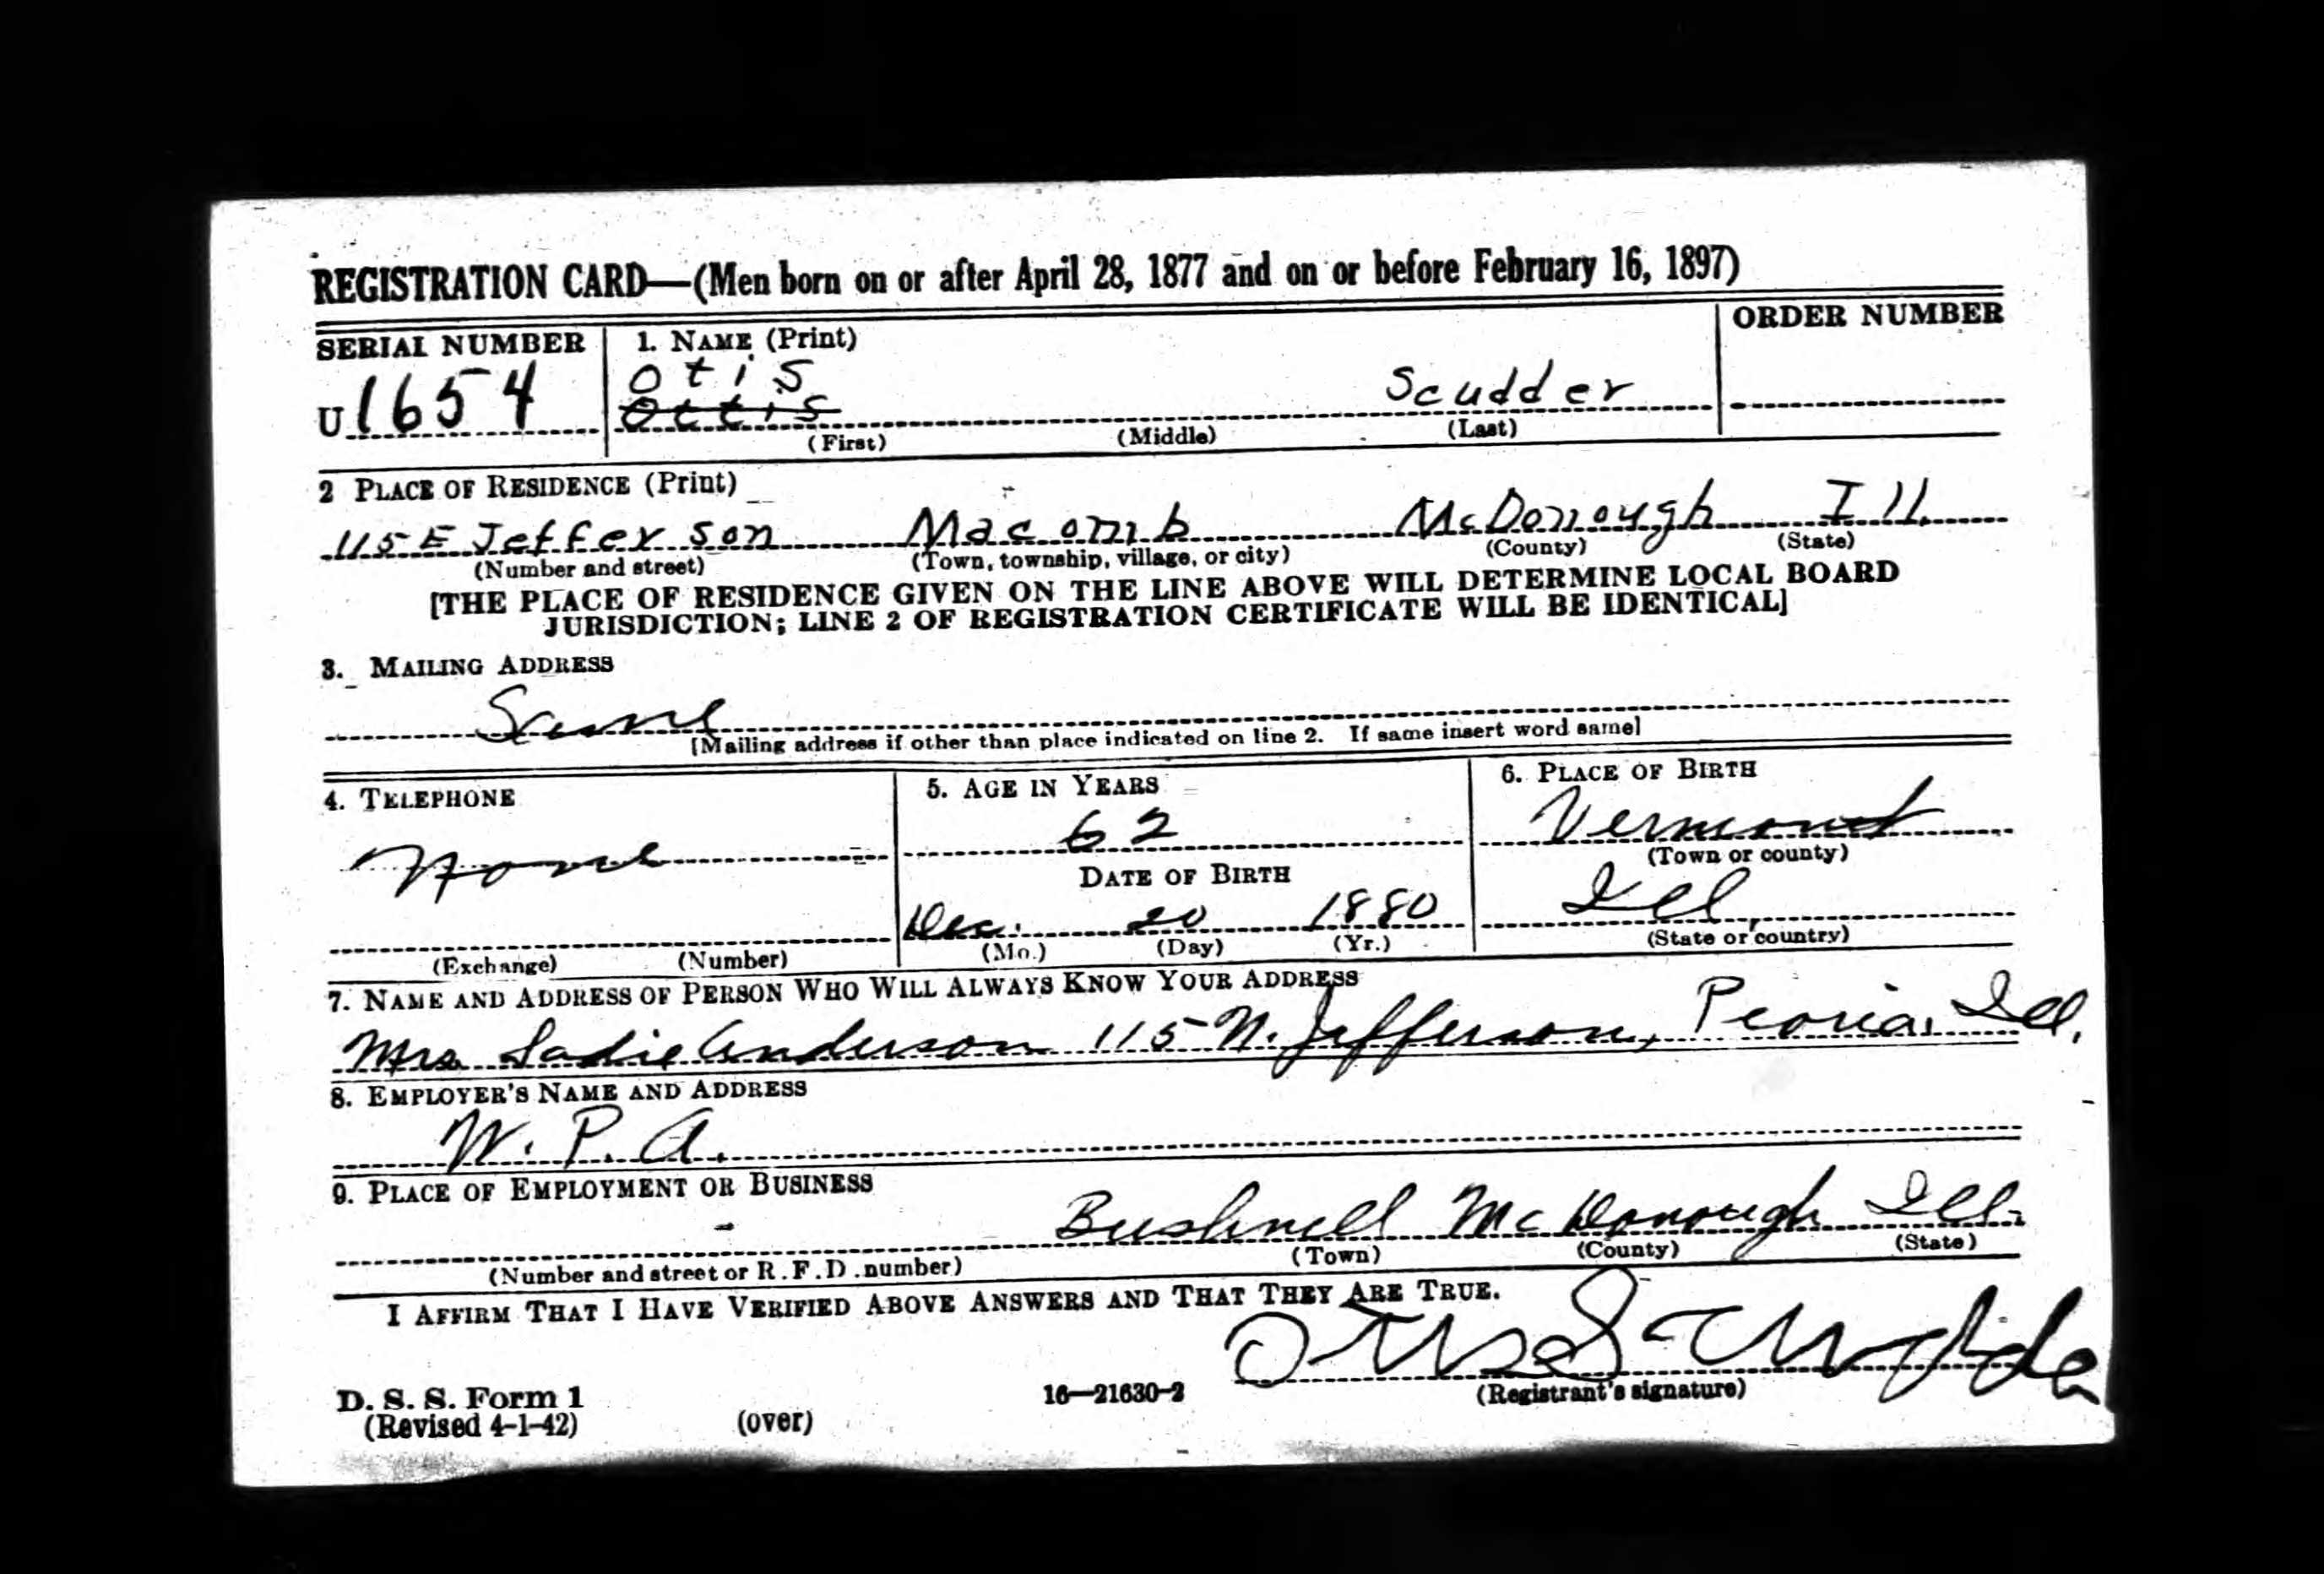 REGISTRATION CARD—(Men born on or after April 28, 1877 and on or before February 16, 1897)
SERIAL NUMBER 1. NAME (Print) ORDER NUMBER
U 1654 Otis Scudder
Ottis
(First) (Middle) (Last)
2 PLACE OF RESIDENCE (Print)
115 E Jefferson Macomb McDonough Ill.
(Number and street) (Town, township, village, or city) (County) (State)
[THE PLACE OF RESIDENCE GIVEN ON THE LINE ABOVE WILL DETERMINE LOCAL BOARD
JURISDICTION; LINE 2 OF REGISTRATION CERTIFICATE WILL BE IDENTICAL]
3. MAILING ADDRESS
Same
[Mailing address if other than place indicated on line 2. If same insert word same]
4. TELEPHONE 5. AGE IN YEARS 6. PLACE OF BIRTH
None 62 Vermont
(Town or county)
DATE OF BIRTH Ill.
Dec. 20 1880
(Exchange) (Number) (Mo.) (Day) (Yr.) (State or country)
7. NAME AND ADDRESS OF PERSON WHO WILL ALWAYS KNOW YOUR ADDRESS
Mrs Sadie Anderson 115 N. Jefferson, Peoria, Ill.
8. EMPLOYER'S NAME AND ADDRESS
W. P. A.
9. PLACE OF EMPLOYMENT OR BUSINESS
Bushnell McDonough Ill.
(Number and street or R.F.D. number) (Town) (County) (State)
I AFFIRM THAT I HAVE VERIFIED ABOVE ANSWERS AND THAT THEY ARE TRUE.
Otis Scudder
D. S. S. Form 1 16—21630-2 (Registrant's signature)
(Revised 4-1-42) (over)